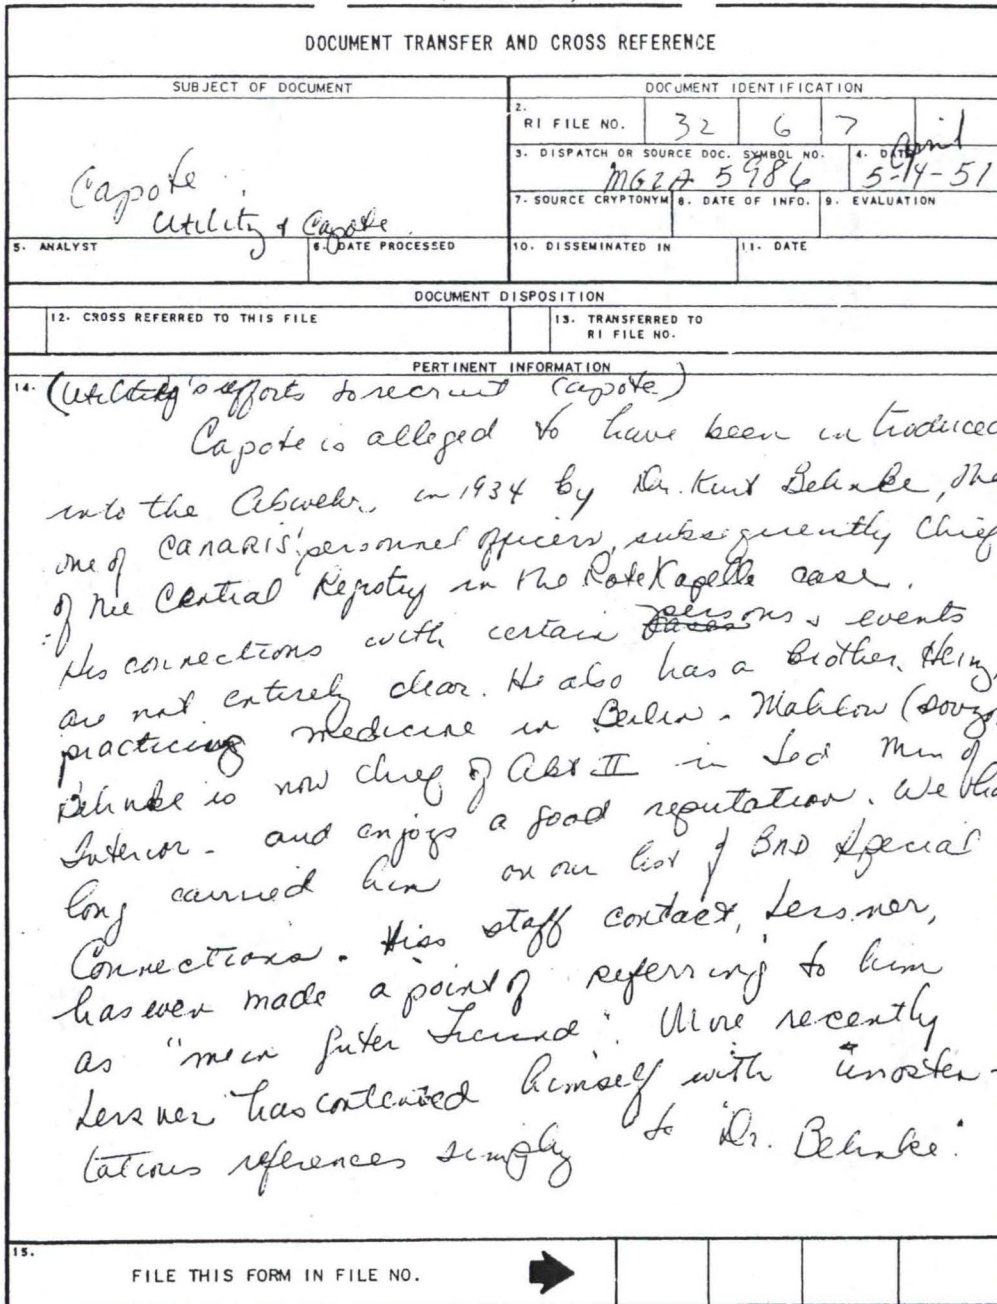 DOCUMENT TRANSFER AND CROSS REFERENCE
SUBJECT OF DOCUMENT
DOCUMENT IDENTIFICATION
Capote
Utility & Capote
2.
RI FILE NO. 32 6 7
3. DISPATCH OR SOURCE DOC. SYMBOL NO.
MGLA 5986
4. DATE
April
5-14-51
7. SOURCE CRYPTONYM
8. DATE OF INFO.
9. EVALUATION
5. ANALYST
6. DATE PROCESSED
10. DISSEMINATED IN
11. DATE
DOCUMENT DISPOSITION
12. CROSS REFERRED TO THIS FILE
13. TRANSFERRED TO
RI FILE NO.
PERTINENT INFORMATION
14. (Utility's efforts to recruit Capote)
Capote is alleged to have been introduced
into the Abwehr, in 1934 by Dr. Kurt Behnke, the
one of CANARIS' personnel officers, subsequently Chief
of the Central Registry in the Rote Kapelle case.
His connections with certain persons & events
are not entirely clear. He also has a brother, Heinz
practicing medicine in Berlin - Mahlow (sovzo
Behnke is now chief of Abt II in Fed Min of
Interior - and enjoys a good reputation. We ha
long carried him on our list of BND Special
Connections. His staff contact, Lessner,
has even made a point of referring to him
as "mein guter Freund". More recently
Lessner has contented himself with unosten-
tatious references simply to "Dr. Behnke".
15.
FILE THIS FORM IN FILE NO.